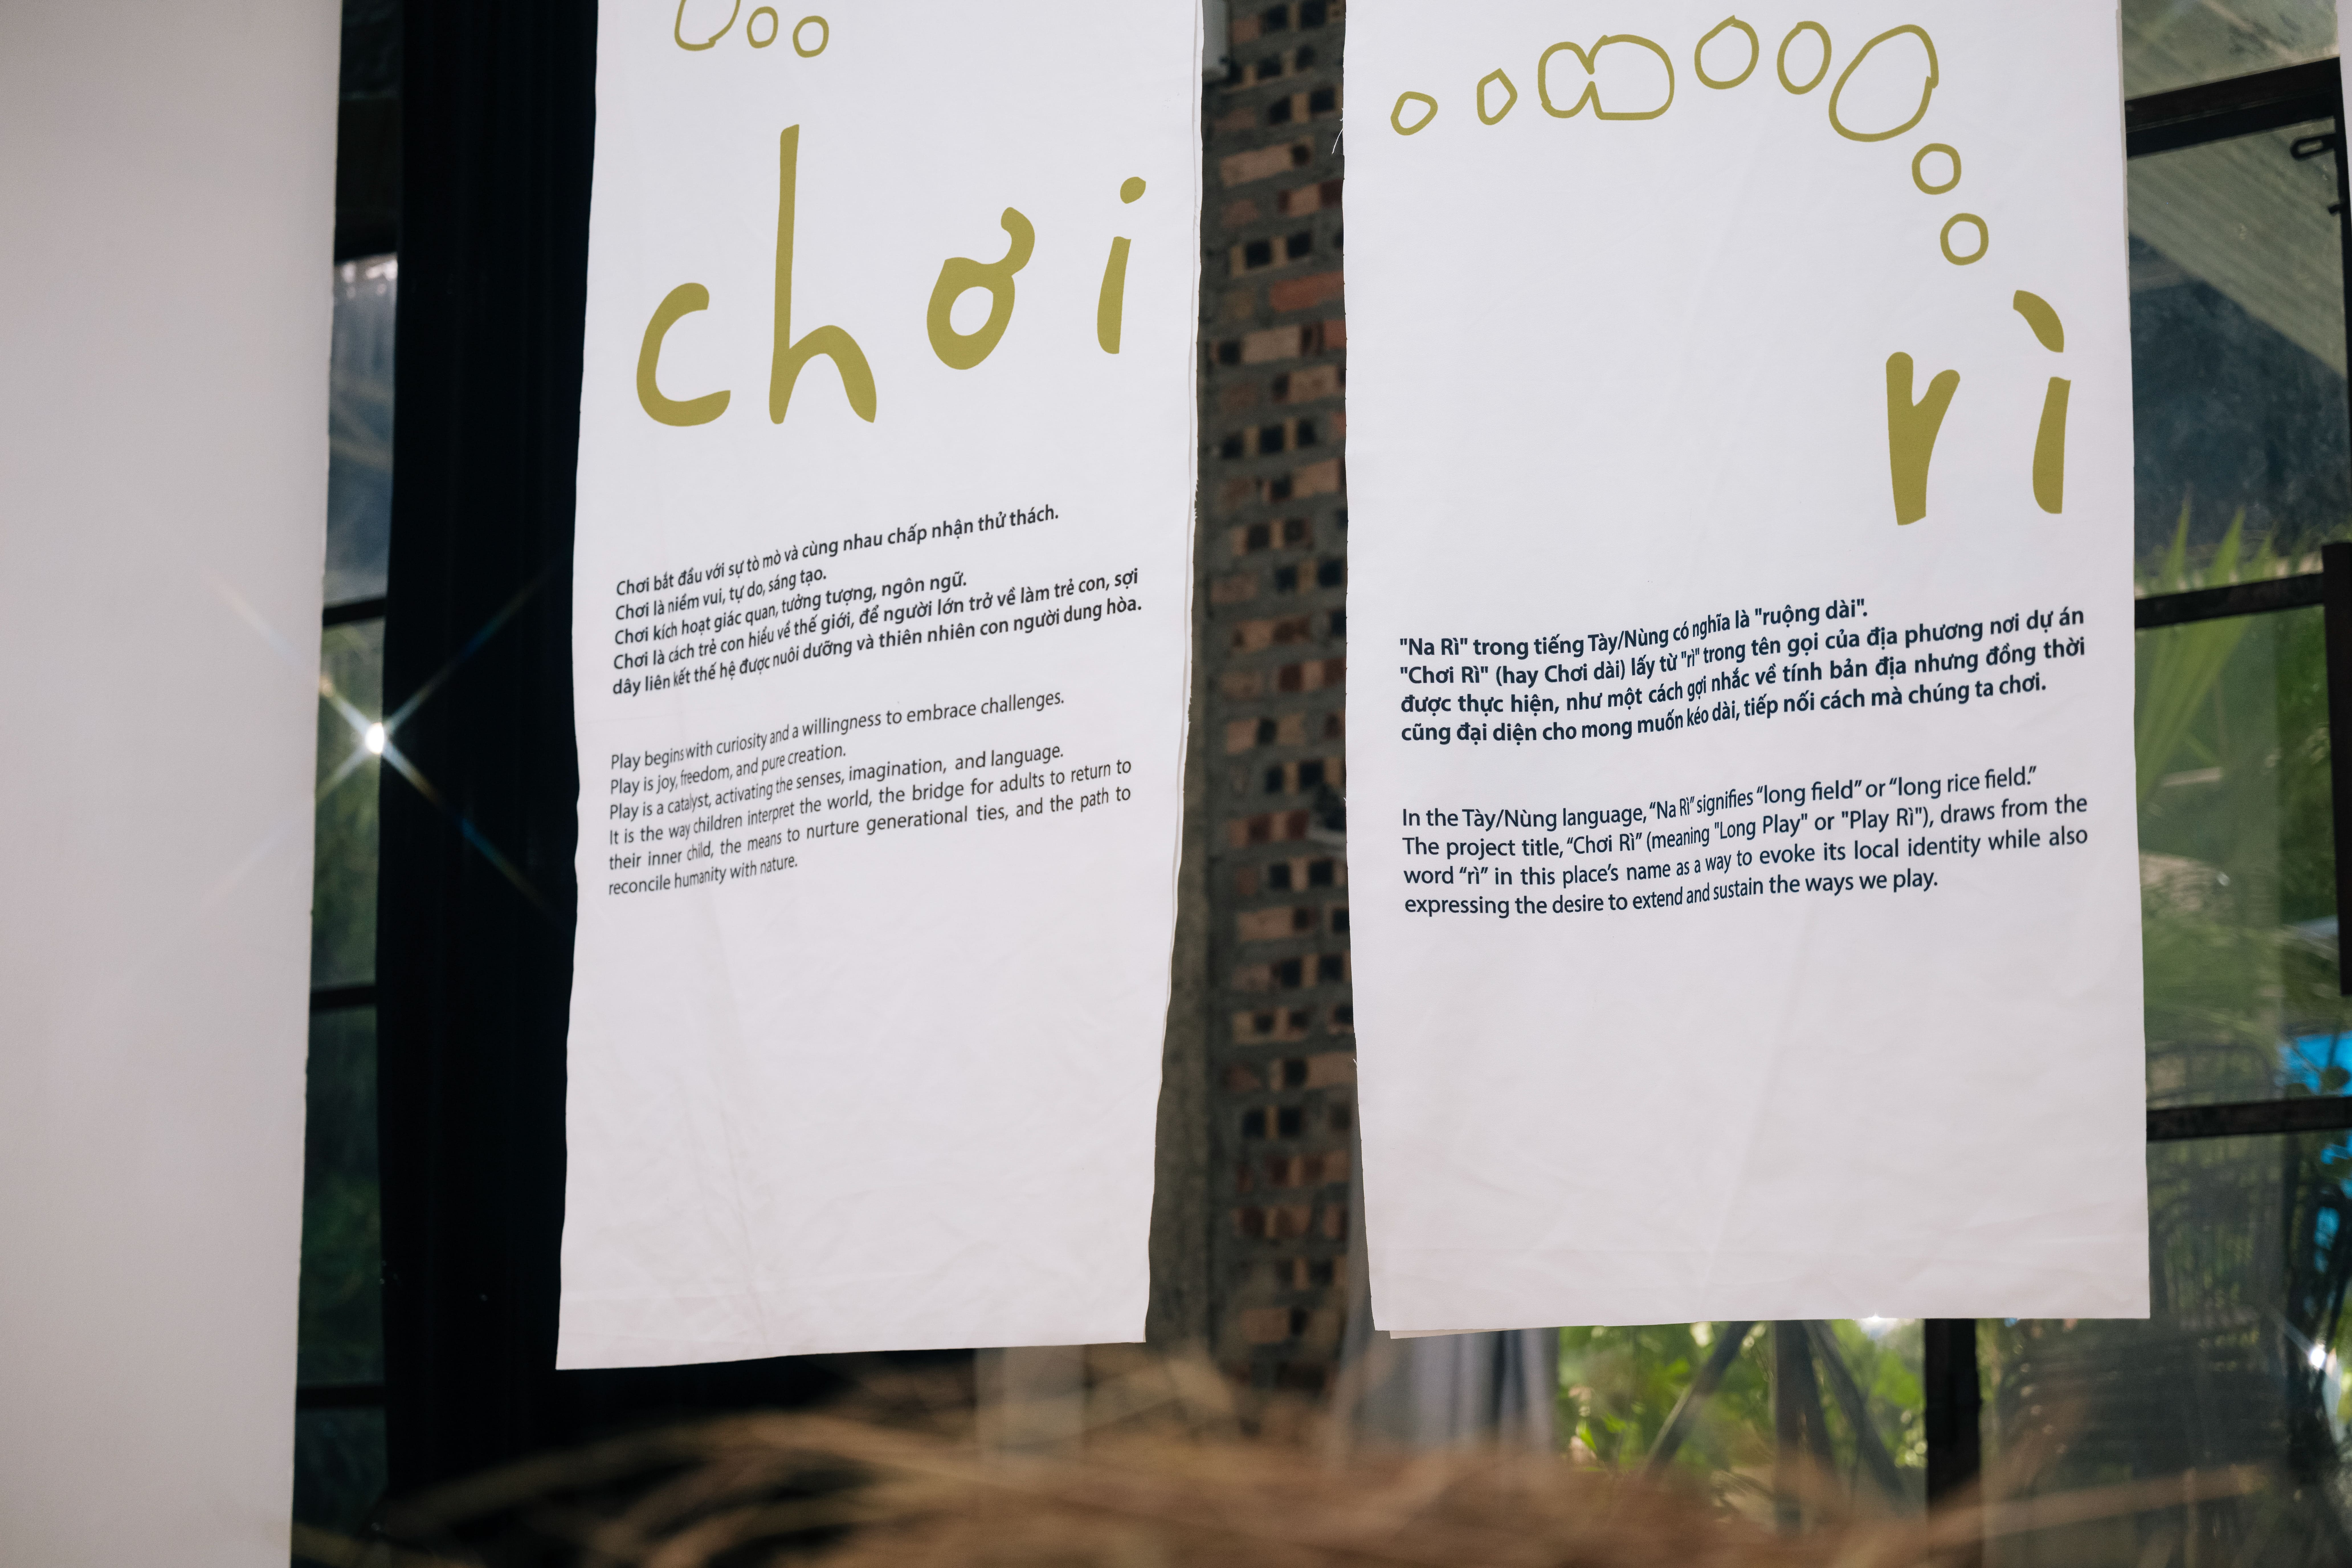 chơi
Chơi bắt đầu với sự tò mò và cùng nhau chấp nhận thử thách.
Chơi là niềm vui, tự do, sáng tạo.
Chơi kích hoạt giác quan, tưởng tượng, ngôn ngữ.
Chơi là cách trẻ con hiểu về thế giới, để người lớn trở về làm trẻ con, sợi
dây liên kết thế hệ được nuôi dưỡng và thiên nhiên con người dung hòa.
Play begins with curiosity and a willingness to embrace challenges.
Play is joy, freedom, and pure creation.
Play is a catalyst, activating the senses, imagination, and language.
It is the way children interpret the world, the bridge for adults to return to
their inner child, the means to nurture generational ties, and the path to
reconcile humanity with nature.
rì
"Na Rì" trong tiếng Tày/Nùng có nghĩa là "ruộng dài".
"Chơi Rì" (hay Chơi dài) lấy từ "rì" trong tên gọi của địa phương nơi dự án
được thực hiện, như một cách gợi nhắc về tính bản địa nhưng đồng thời
cũng đại diện cho mong muốn kéo dài, tiếp nối cách mà chúng ta chơi.
In the Tày/Nùng language, “Na Rì” signifies “long field” or “long rice field.”
The project title, “Chơi Rì” (meaning "Long Play" or "Play Rì"), draws from the
word “rì” in this place’s name as a way to evoke its local identity while also
expressing the desire to extend and sustain the ways we play.